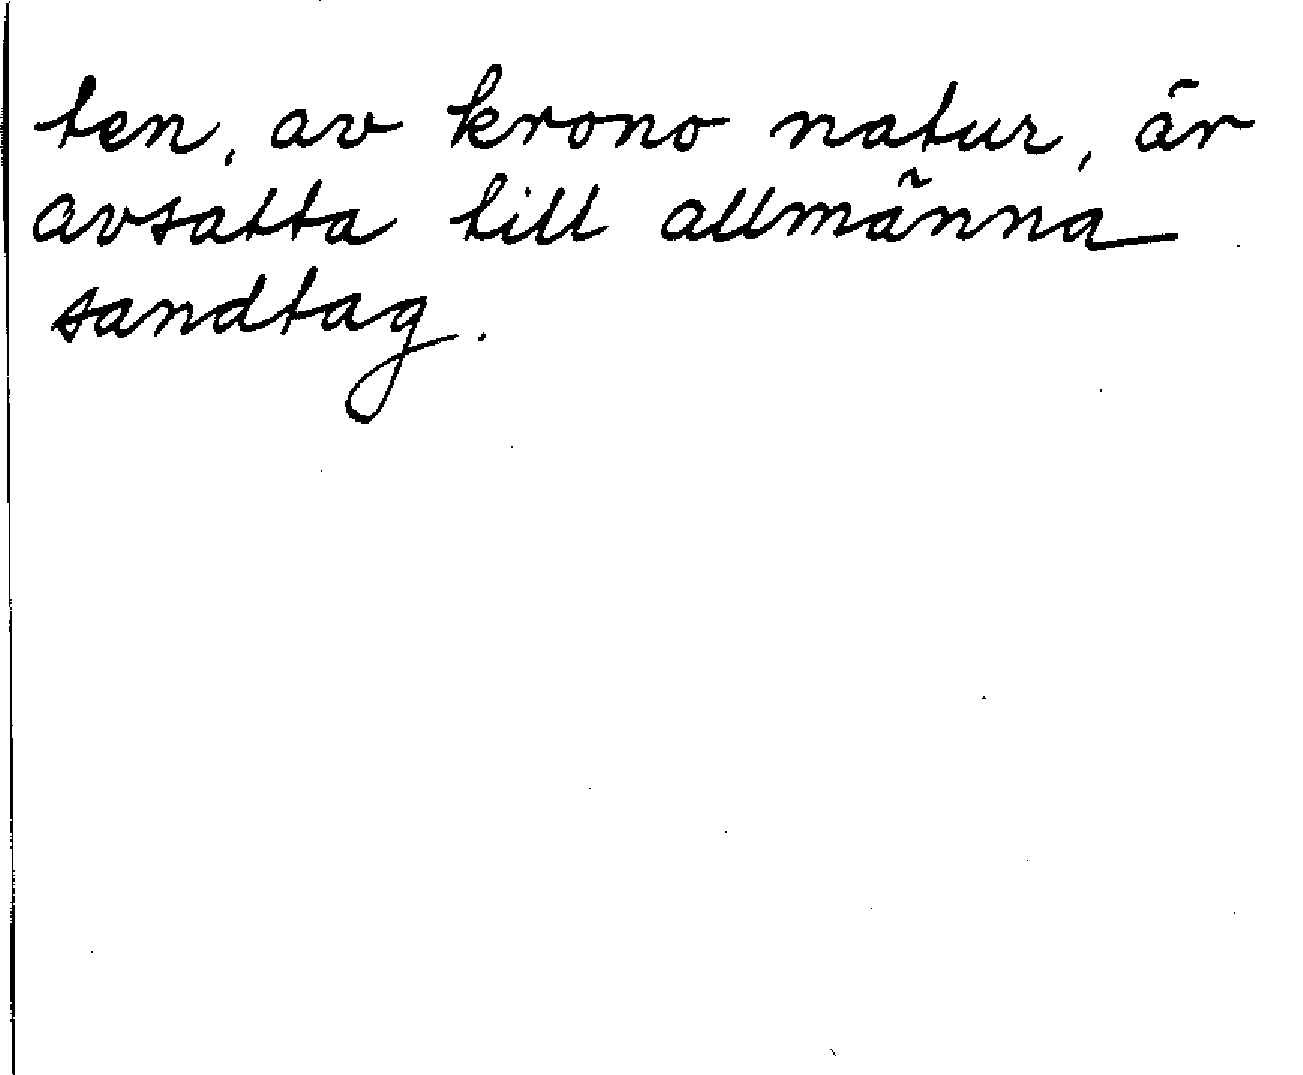 ten, av krono natur, är
avsatta till allmänna
sandtag.